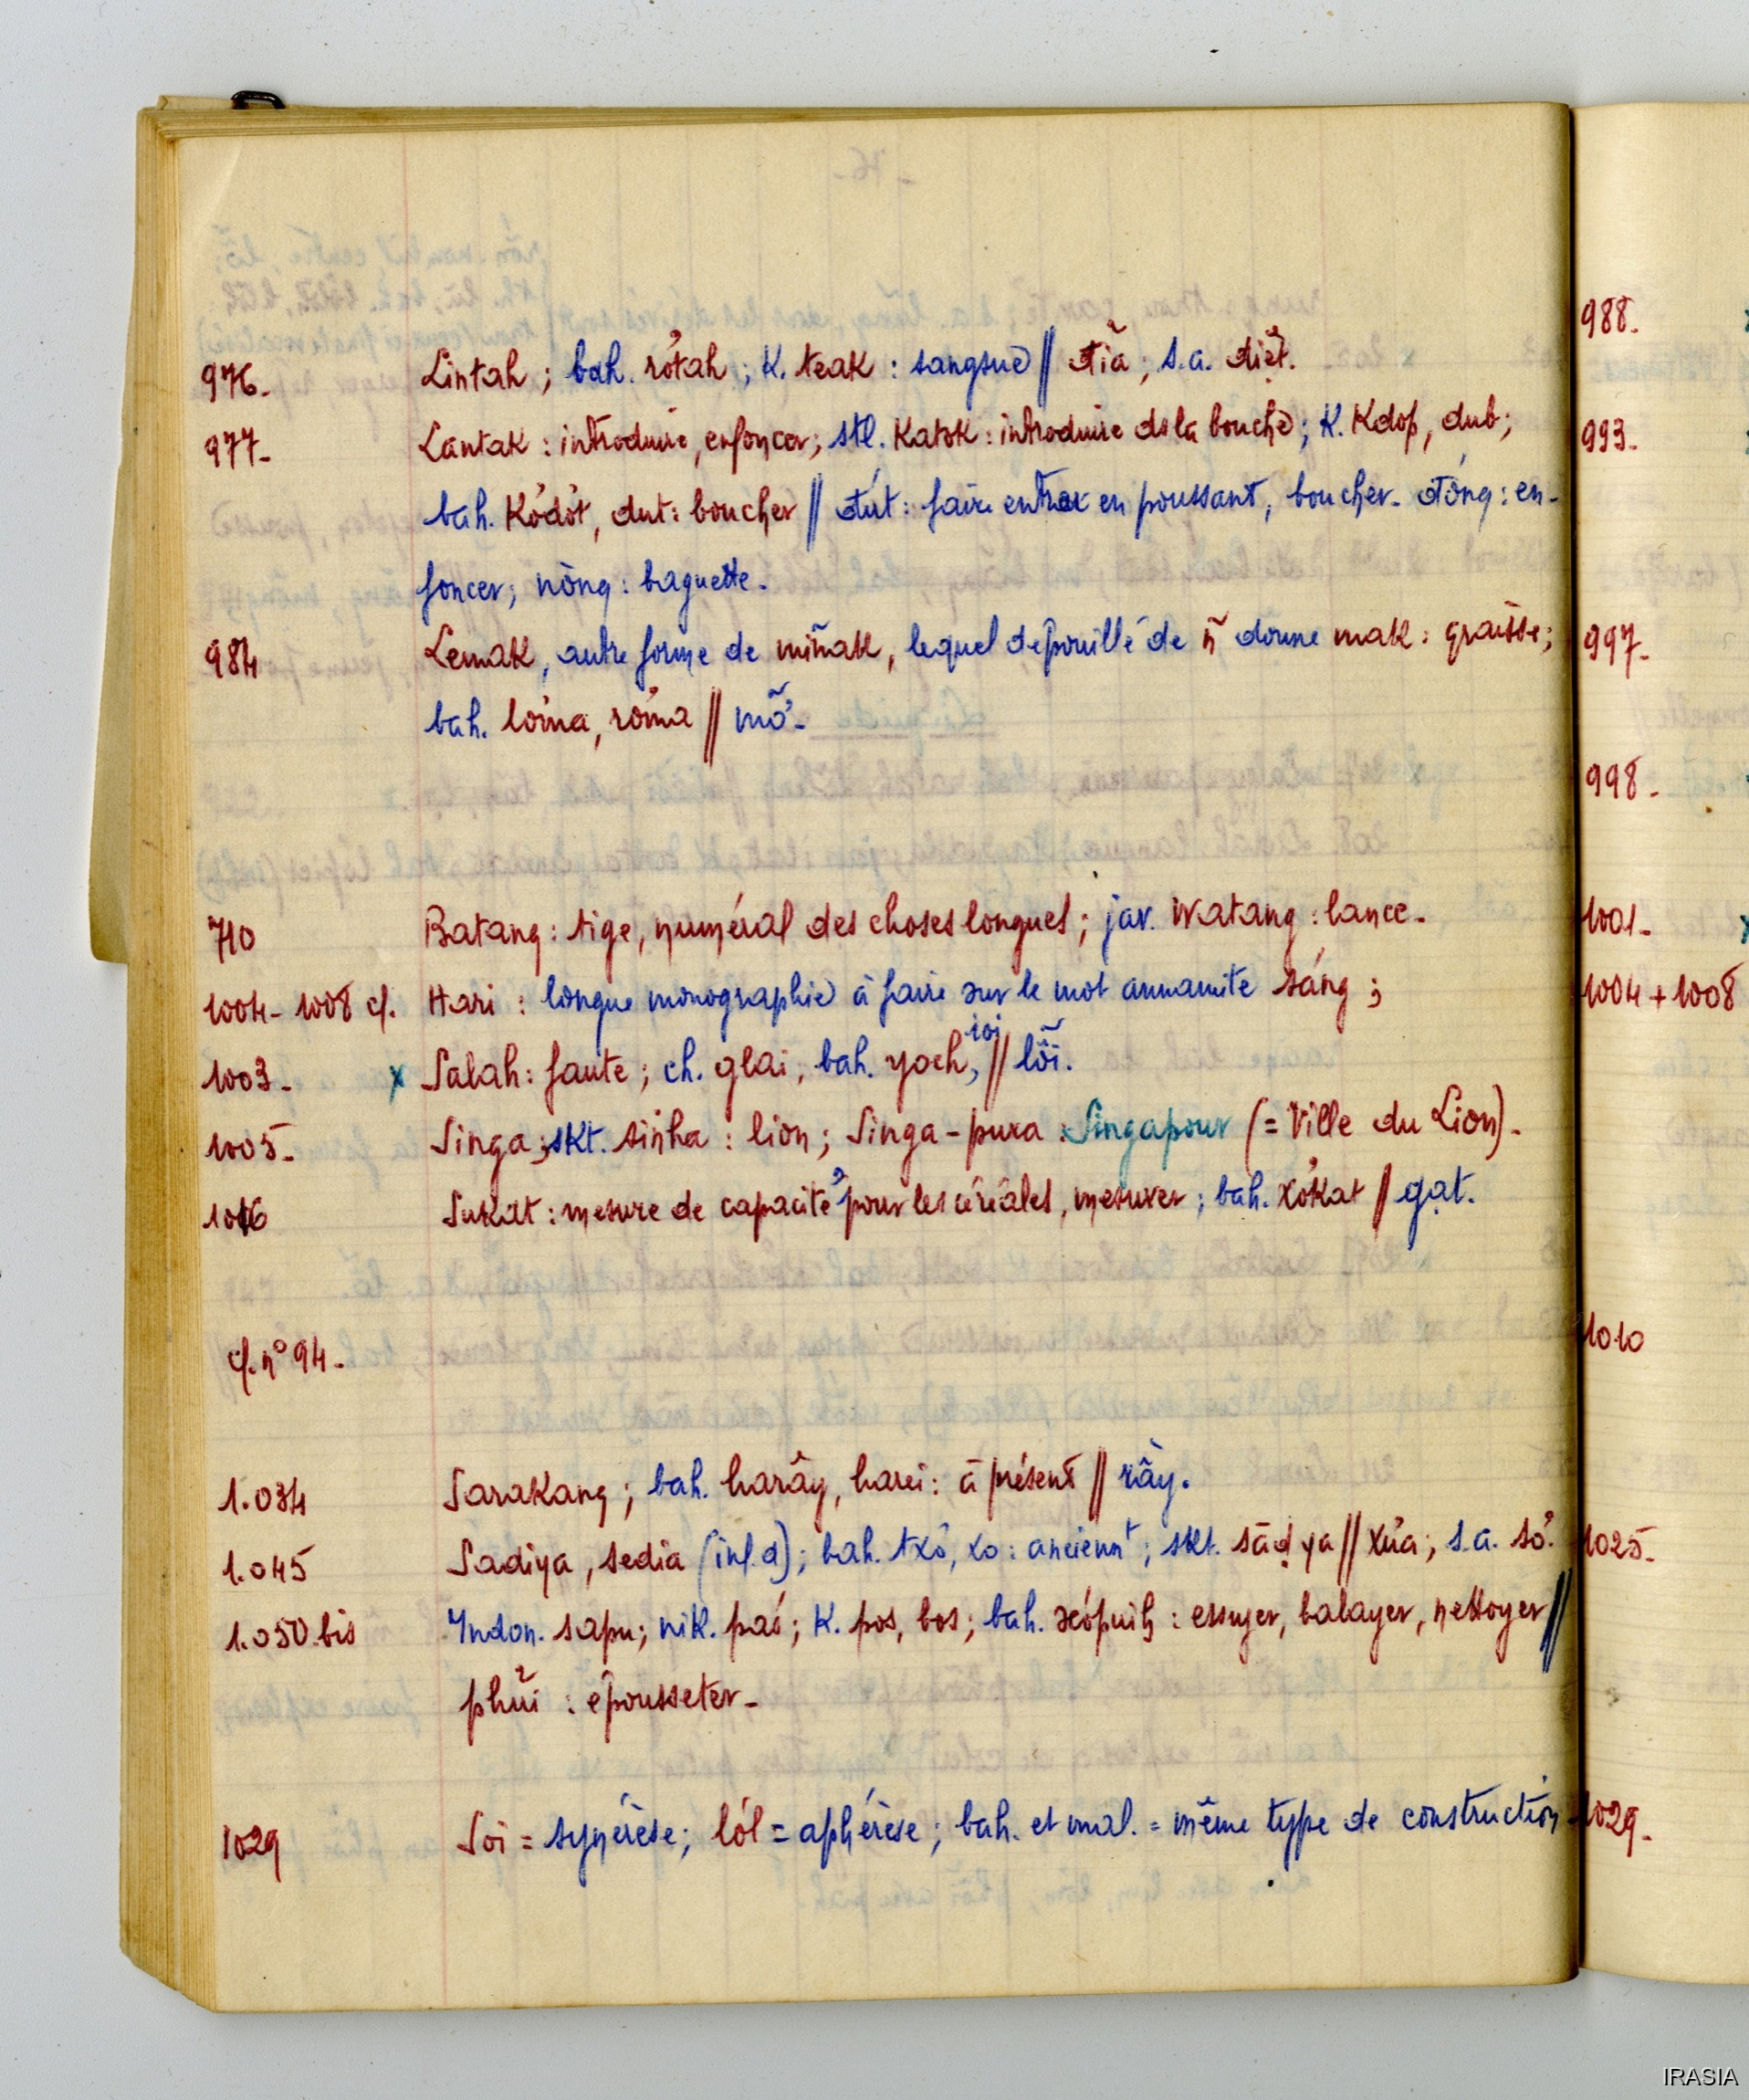 976- Lintah ; bah. rơ̆tah ; K. teak : sangsue // đĩa ; s.a. điẹt.
977- Lantak : introduire, enfoncer ; stl. Katok : introduire ds la bouche ; K. Kdop, dub ;
bah. Kơ̆dơ̆t, dut : boucher // đút : faire entrer en poussant, boucher- đóng : en-
foncer ; nòng : baguette-
984 Lemak, autre forme de miñak, lequel dépouillé de ñ donne mak : graisse ;
bah. lơma, rơma // mỡ-
710 Batang : tige, numéral des choses longues ; jav. Watang : lance-
1004- 1008 cf. Hari : longue monographie à faire sur le mot annamite sáng ;
ioi
1003- x Salah : faute ; ch. glai, bah. yoch, // lỗi.
1005- Singa ; skt. sinha : lion ; Singa-pura : Singapour (= Ville du Lion)-
1016 Sukat : mesure de capacité pour les céréales, mesurer ; bah. xơ̆kat // gạt.
cf. n° 94-
1.034 Sarakang ; bah. harây, harei : à présent // rày.
1.045 Sadiya, sedia (inf. d) ; bah. txơ̆, xo : ancienn^t ; skt. sādya // xưa ; s.a. sơ.
1.050 bis Indon. sapu ; nik. paó ; K. pos, bos ; bah. : essuyer, balayer, nettoyer //
phủi : épousseter-
1029 Soi = synérèse ; lól = aphérèse ; bah. et mal. = même type de construction-
988-
993-
997-
998-
1001-
1004 + 1008
1010
1025-
1029-
IRASIA